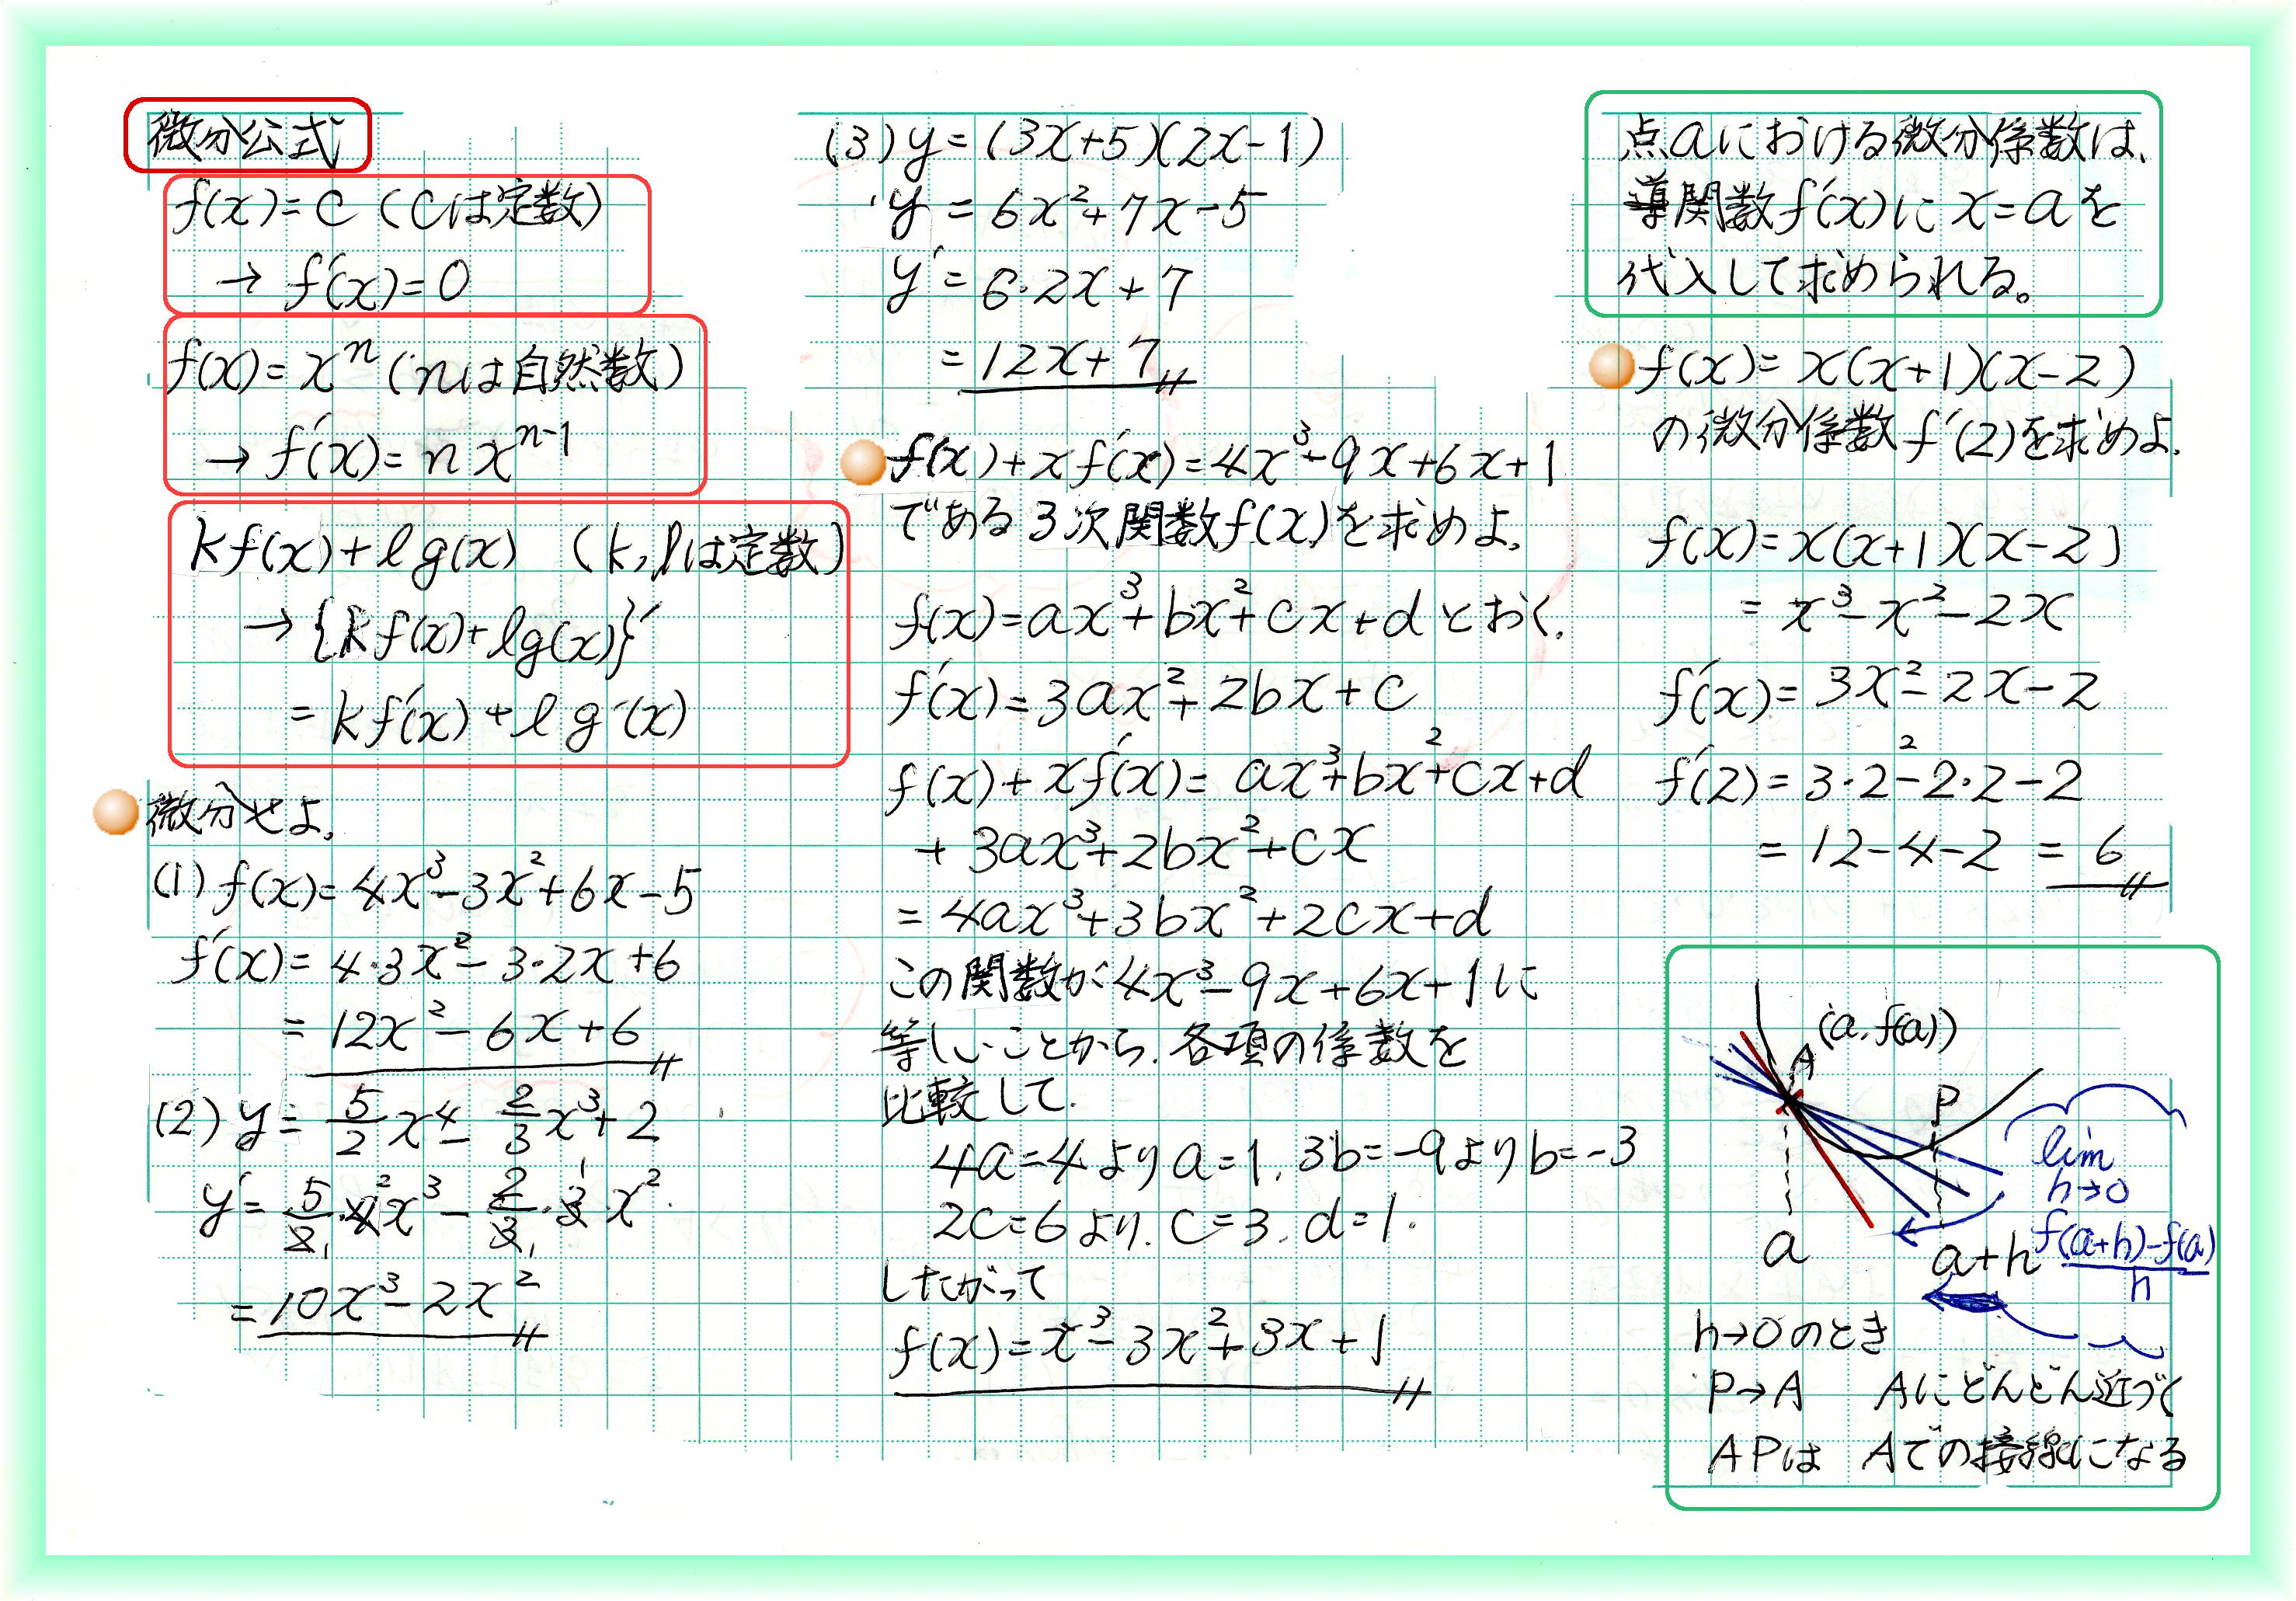 微分公式
f(x)=C (Cは定数)
→ f'(x)=0
f(x)=xⁿ (nは自然数)
→ f'(x)=nxⁿ⁻¹
kf(x)+lg(x) (k,lは定数)
→{kf(x)+lg(x)}'
=kf'(x)+lg'(x)
微分せよ。
(1) f(x)=4x³-3x²+6x-5
f'(x)=4·3x²-3·2x+6
=12x²-6x+6
(2) y=5/2 x⁴-2/3 x³+2
y'=5/2·4x³-2/3·3·x²
=10x³-2x²
(3) y=(3x+5)(2x-1)
y=6x²+7x-5
y'=6·2x+7
=12x+7
f(x)+xf'(x)=4x³-9x+6x+1
である3次関数f(x)を求めよ。
f(x)=ax³+bx²+cx+dとおく.
f'(x)=3ax²+2bx+c
f(x)+xf'(x)=ax³+bx²+cx+d
+3ax³+2bx²+cx
=4ax³+3bx²+2cx+d
この関数が4x³-9x+6x+1に
等しいことから.各項の係数を
比較して.
4a=4よりa=1, 3b=-9よりb=-3
2c=6より. c=3, d=1.
したがって
f(x)=x³-3x²+3x+1
点aにおける微分係数は、
導関数f'(x)にx=aを
代入して求められる。
f(x)=x(x+1)(x-2)
の微分係数f'(2)を求めよ.
f(x)=x(x+1)(x-2)
=x³-x²-2x
f'(x)=3x²-2x-2
f'(2)=3·2²-2·2-2
=12-4-2 =6
(a, f(a))
A
P
lim
h→0
f(a+h)-f(a)
h
a
a+h
h→0のとき
P→A Aにどんどん近づく
APは Aでの接線になる